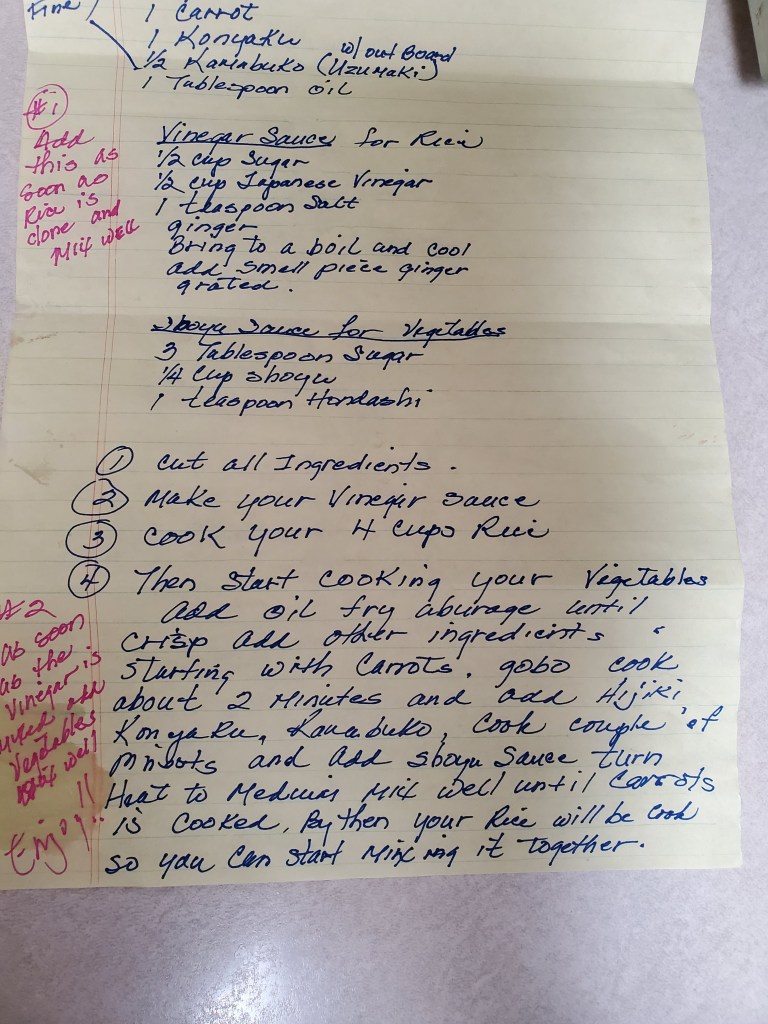 Fine
1 Carrot
1 Konyaku
1/2 Kamabuko (Uzumaki) w/out Board
1 Tablespoon oil
#1
Add
this as
soon as
Rice is
done and
Mix well
Vinegar Sauce for Rice
1/2 cup Sugar
1/2 cup Japanese Vinegar
1 teaspoon Salt
ginger
Bring to a boil and cool
add small piece ginger
grated.
Shoyu Sauce for Vegetables
3 Tablespoon Sugar
1/4 cup shoyu
1 teaspoon Hondashi
1 cut all Ingredients.
2 Make your Vinegar sauce
3 cook your 4 cups Rice
4 Then start cooking your Vegetables
add oil fry aburage until
crisp add other ingredients
starting with Carrots, gobo cook
about 2 Minutes and add Hijiki
Konyaku, Kamabuko, cook couple of
and add shoyu Sauce turn
Heat to Medium Mix well until Carrots
is cooked, By then your Rice will be cook
so you can start Mixing it together.
#2
as soon
as the
Vinegar is
mixed add
Vegetables
Mix well
Enjoy!!